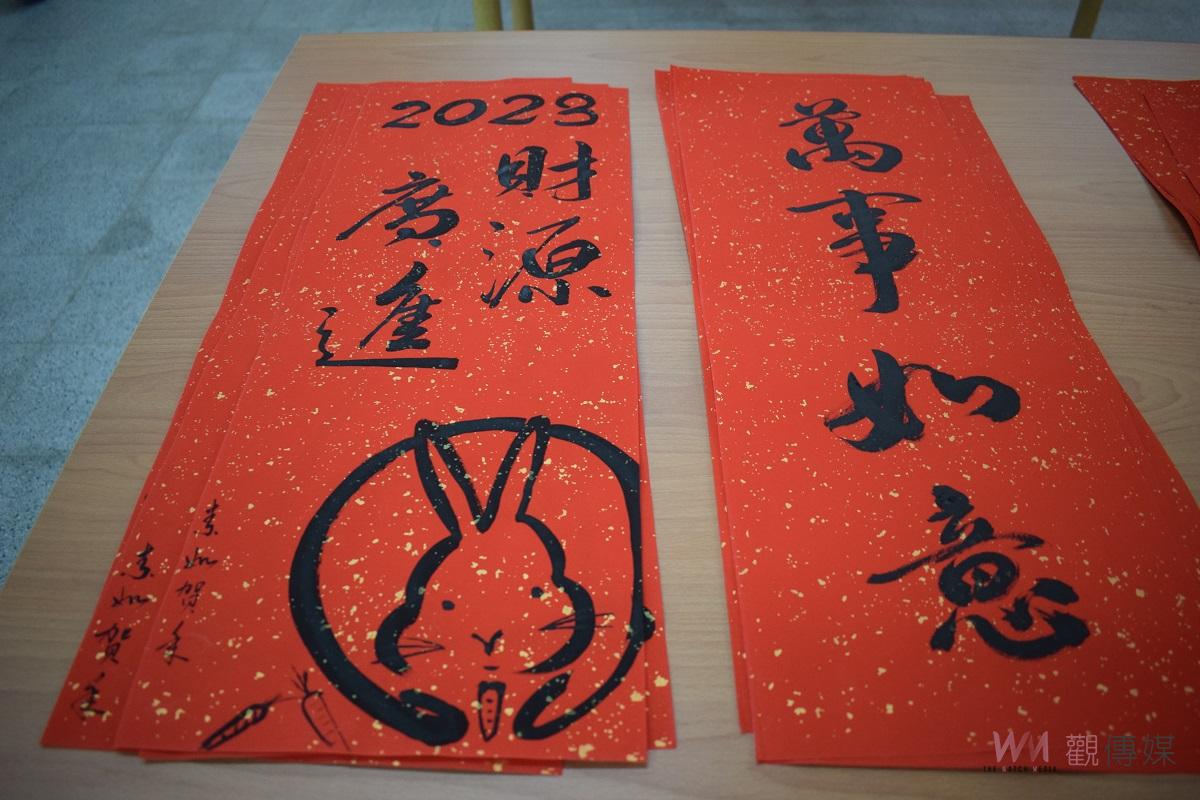 2023
財源
廣進
素如賀年
素如賀年
萬事如意
WM 觀傳媒
THE WATCH MEDIA